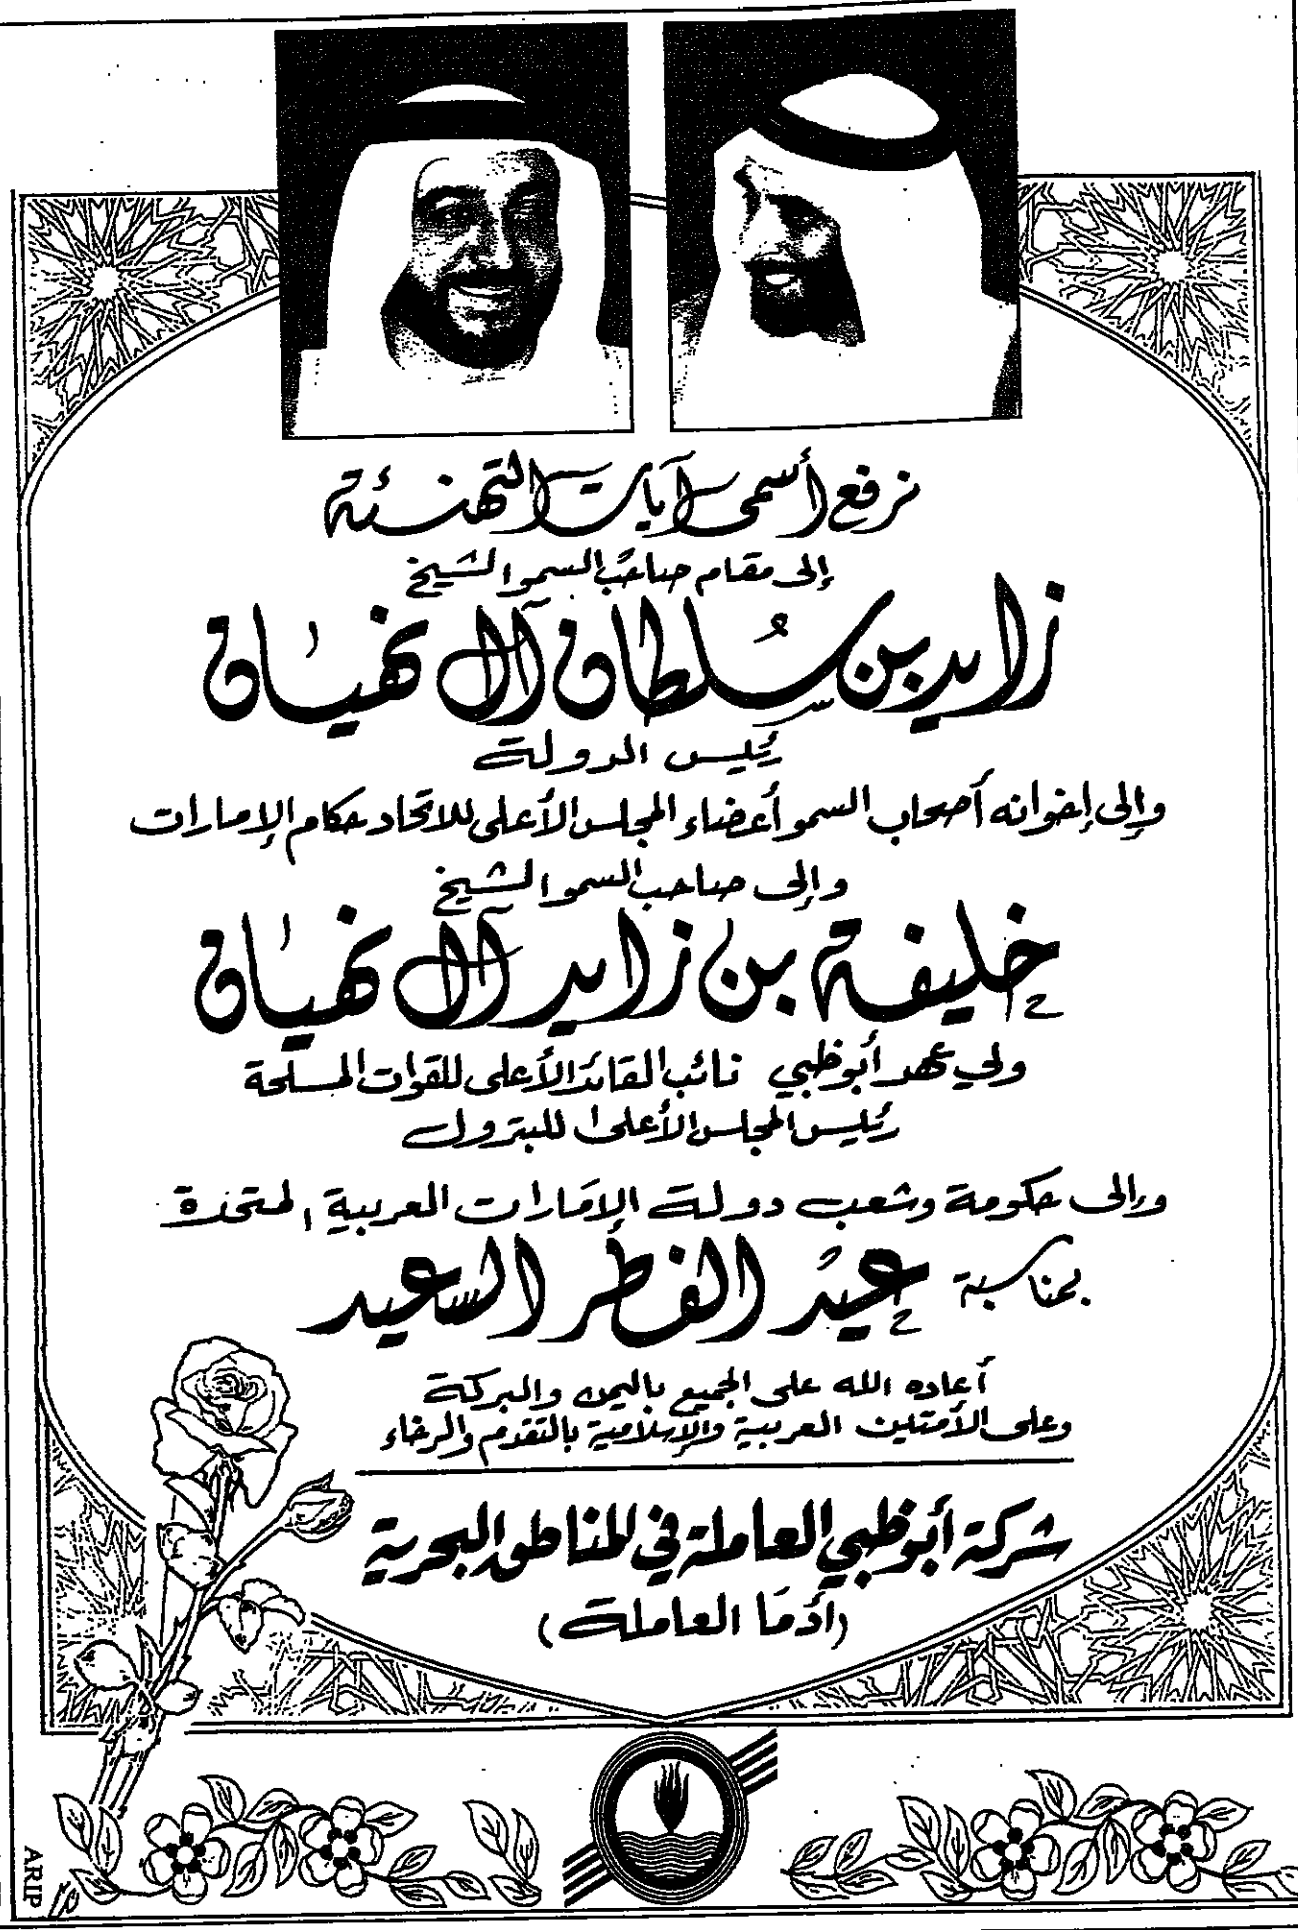 نرفع أسمى آيات التهنئة
إلى مقام صاحب السمو الشيخ
زايد بن سُلطان آل نهيان
رئيس الدولة
وإلى إخوانه أصحاب السمو أعضاء المجلس الأعلى للاتحاد حكام الإمارات
وإلى صاحب السمو الشيخ
خليفة بن زايد آل نهيان
ولي عهد أبوظبي نائب القائد الأعلى للقوات المسلحة
رئيس المجلس الأعلى للبترول
وإلى حكومة وشعب دولة الإمارات العربية المتحدة
بمناسبة عيد الفطر السعيد
أعاده الله على الجميع باليمن والبركة
وعلى الأمتين العربية والإسلامية بالتقدم والرخاء
شركة أبوظبي العاملة في المناطق البحرية
(أدما العاملة)
ARIP